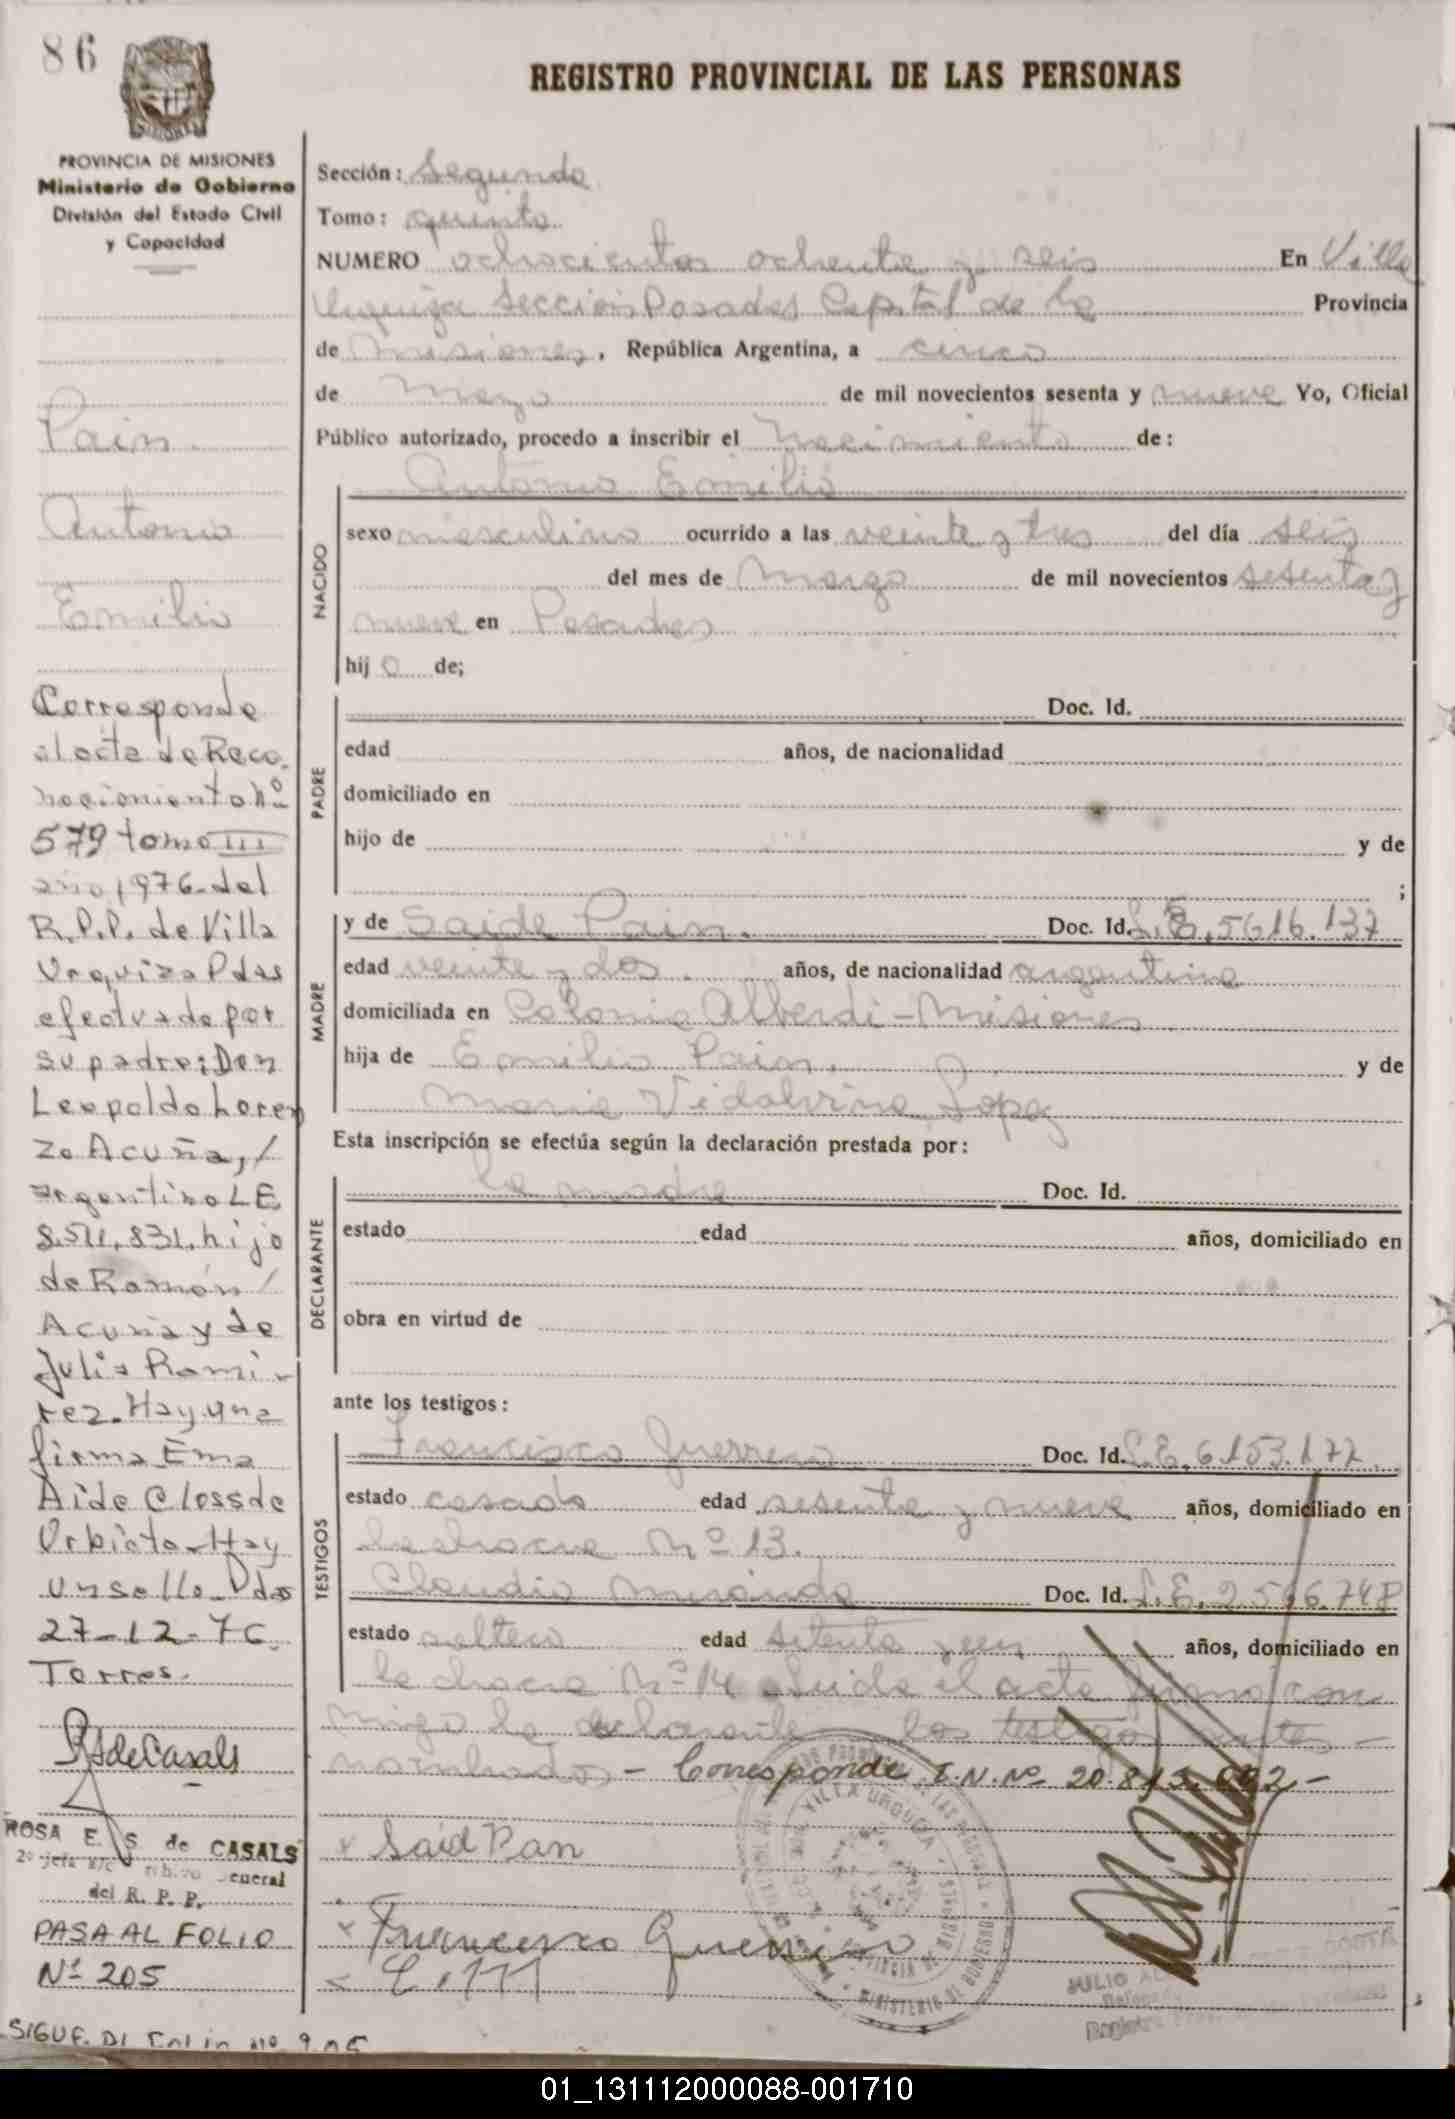 86
REGISTRO PROVINCIAL DE LAS PERSONAS
PROVINCIA DE MISIONES
Ministerio de Gobierno
División del Estado Civil
y Capacidad
Pain.
Antonio
Emilio
Corresponde
al acta de Reco-
nocimiento Nº
579 tomo III
año 1976 del
R.P.P. de Villa
Urquiza Pdas
efectuada por
su padre: Don
Leopoldo Loren
zo Acuña, /
argentino LE
8.511.831. hijo
de Ramón /
Acuña y de
Julia Rami-
rez. Hay una
firma Ema
Aide Closs de
Urbieta. Hay
un sello. Pdas
27-12-76.
Torres.
RSdeCasals
ROSA E. S. de CASALS
General
del R. P. P.
PASA AL FOLIO
Nº 205
Sección: Segunda
Tomo: quinto
NUMERO ochocientos ochenta y seis En Villa
Urquiza Sección Posadas Capital de la Provincia
de Misiones, República Argentina, a cinco
de Mayo de mil novecientos sesenta y nueve Yo, Oficial
Público autorizado, procedo a inscribir el Nacimiento de:
Antonio Emilio
NACIDO
sexo masculino ocurrido a las veinte y tres del día seis
del mes de Marzo de mil novecientos sesenta y
nueve en Posadas
hij o de;
PADRE
Doc. Id.
edad años, de nacionalidad
domiciliado en
hijo de y de
;
MADRE
y de Saide Pain. Doc. Id. L.E. 5616.137
edad veinte y dos. años, de nacionalidad argentina
domiciliada en Colonia Alberdi - Misiones
hija de Emilio Pain. y de
Maria Vidalvina Lopez
Esta inscripción se efectúa según la declaración prestada por:
DECLARANTE
la madre Doc. Id.
estado edad años, domiciliado en
obra en virtud de
ante los testigos:
TESTIGOS
Francisco Guerrero Doc. Id. L.E. 6153.177
estado casado edad sesenta y nueve años, domiciliado en
la chacra Nº 13.
Claudio Miranda Doc. Id. L.E. 2566.748
estado soltero edad setenta y un años, domiciliado en
la chacra Nº 14. Leida el acta firma con
migo la declarante y los testigos antes
nombrados - Corresponde I.N. Nº 20.813.692 -
x Said Pan
x Francisco Guerrero
x C. M
VILLA URQUIZA
PROVINCIA DE MISIONES
MINISTERIO DE GOBIERNO
JULIO
Registro
SIGUE. DL Folio Nº 205
01_131112000088-001710